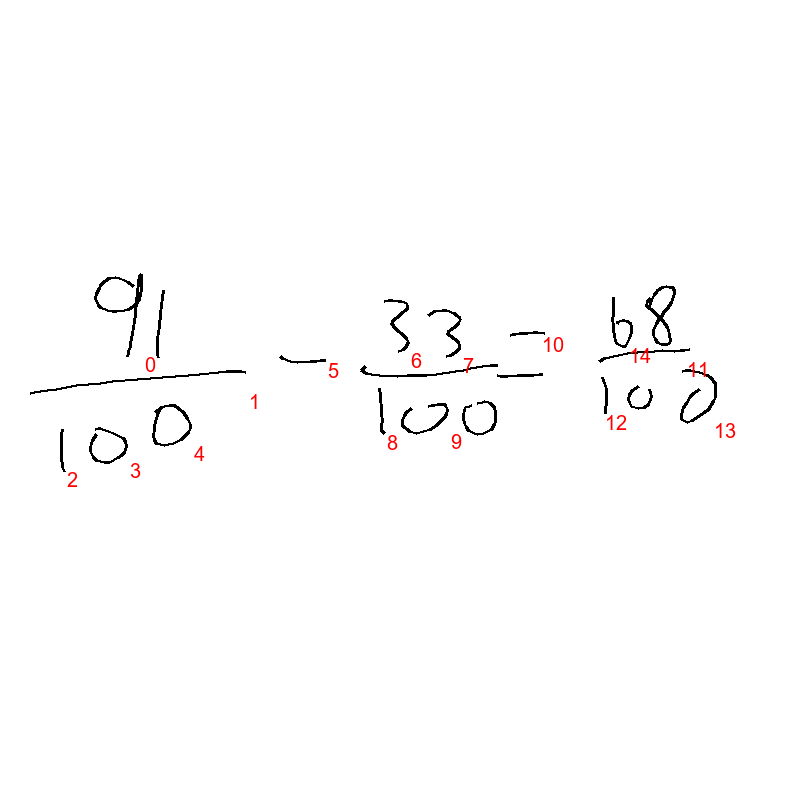 91/100 - 33/100 = 68/100
0 1 2 3 4 5 6 7 8 9 10 14 11 12 13